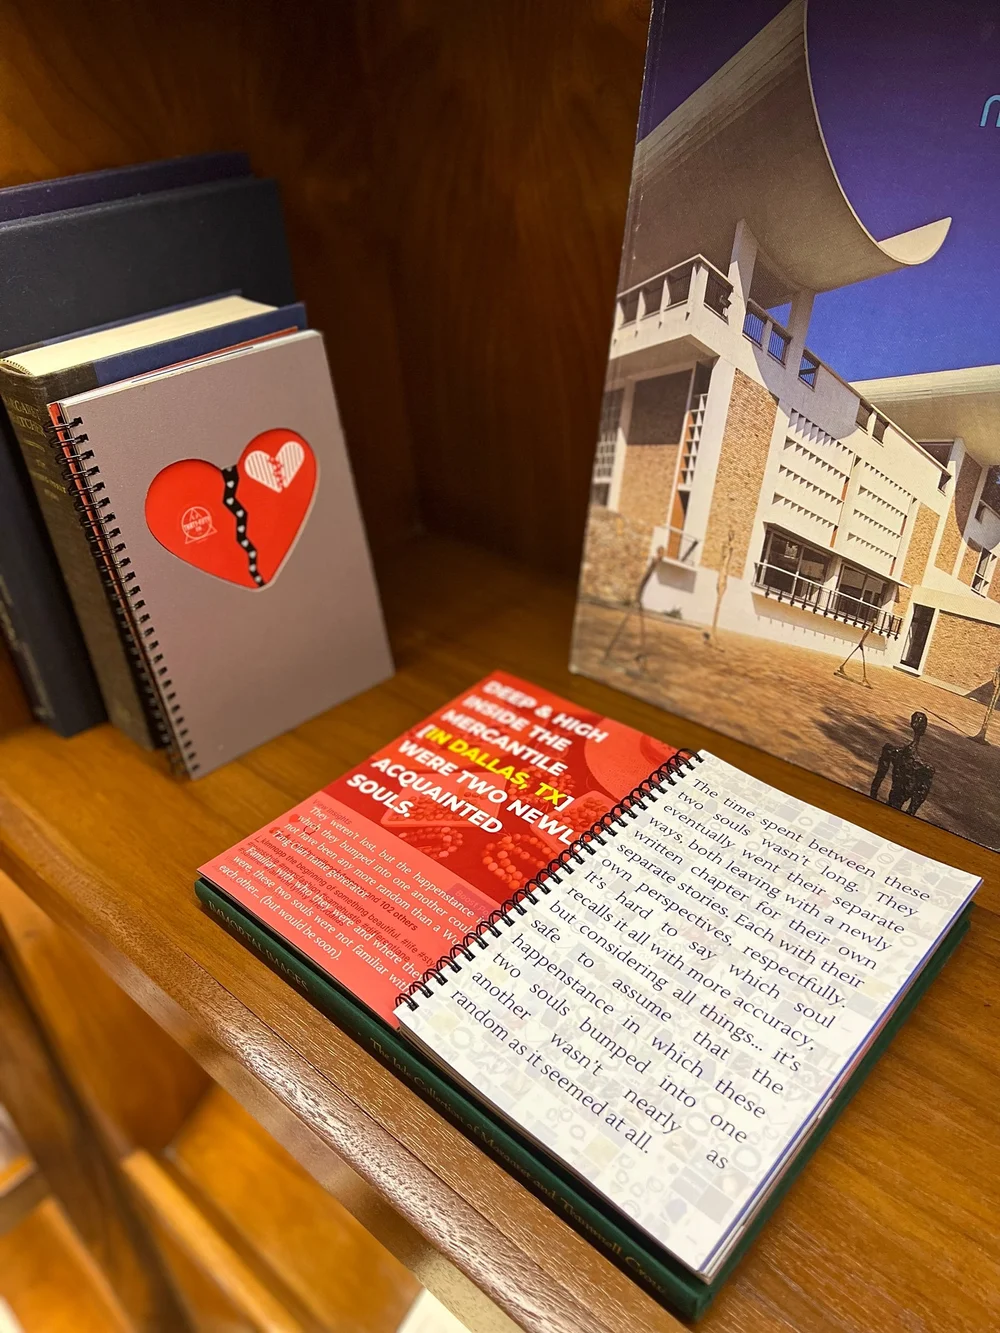 DEEP & HIGH
INSIDE THE
MERCANTILE
[IN DALLAS, TX]
WERE TWO NEWL
ACQUAINTED
SOULS.
They weren't lost, but the happenstance
which they bumped into one another coul
not have been any more random than a W
Tang Clan name generator
Familiar with who they were and where they
were, these two souls were not familiar with
each other... (but would be soon).
and 102 others
the beginning of something beautiful. #life #sty
The time spent between these
two souls wasn't long. They
eventually went their separate
ways, both leaving with a newly
written chapter for their own
separate stories. Each with their
own perspectives, respectfully.
It's hard to say which soul
recalls it all with more accuracy,
but considering all things... it's
safe to assume that the
happenstance in which these
two souls bumped into one
another wasn't nearly as
random as it seemed at all.
IMMORTAL IMAGES
The Jade Collection of Margaret and Trammell Crow